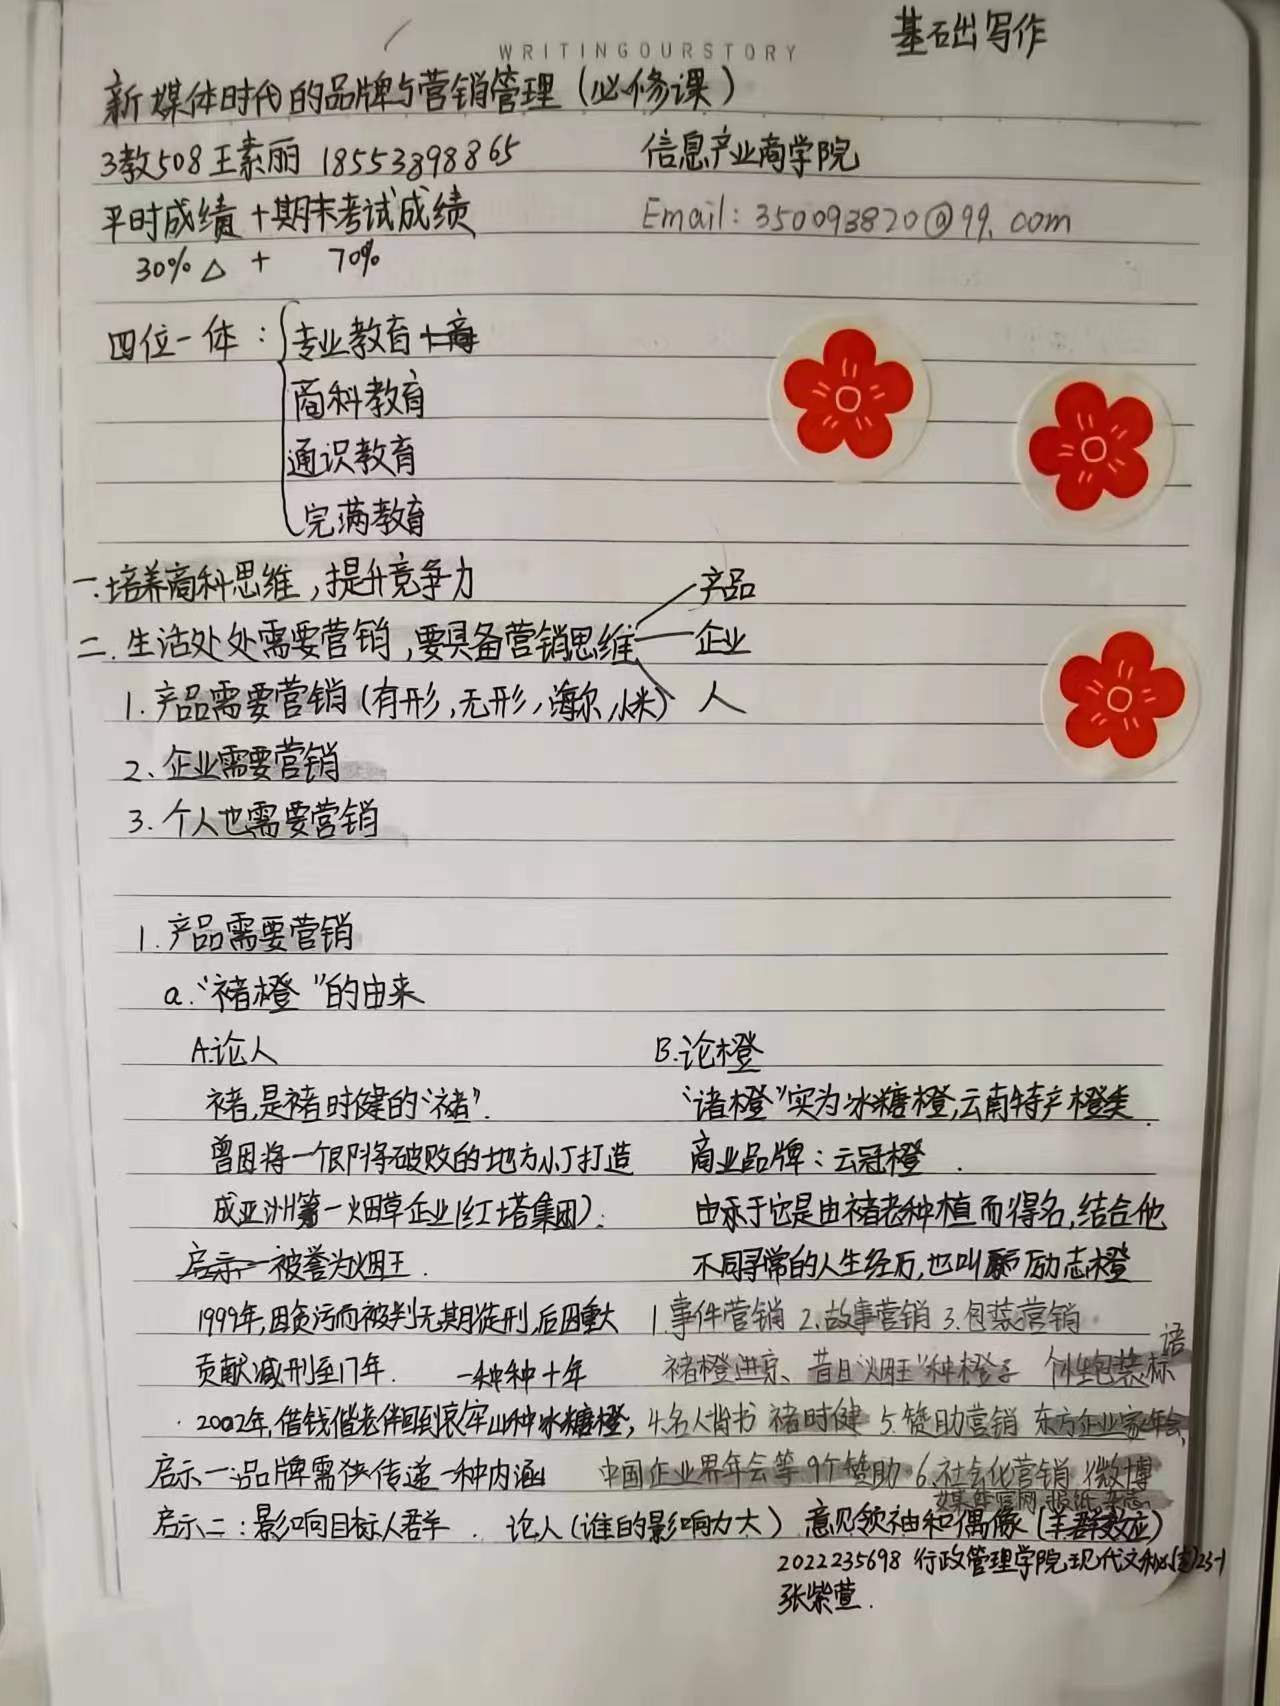 基础写作
WRITINGOURSTORY
新媒体时代的品牌与营销管理(必修课)
3教508王素丽 18553898865 信息产业商学院
平时成绩+期末考试成绩 Email:350093820@99.com
30%△ + 70%
四位一体:专业教育
商科教育
通识教育
完满教育
一.培养商科思维,提升竞争力
二.生活处处需要营销,要具备营销思维 产品
企业
人
1.产品需要营销(有形,无形,海尔,小米)
2、企业需要营销
3.个人也需要营销
1.产品需要营销
a.“褚橙”的由来
A.论人 B.论橙
褚,是褚时健的“褚”. “诸橙”实为冰糖橙,云南特产橙类.
曾因将一个即将破败的地方小厂打造 商业品牌:云冠橙.
成亚洲第一烟草企业(红塔集团). 由于它是由褚老种植而得名,结合他
启示一被誉为烟王. 不同寻常的人生经历,也叫励志橙
1999年,因贪污而被判无期徒刑,后因重大 1.事件营销 2.故事营销 3.包装营销
贡献减刑至17年. 一种种十年 褚橙进京、昔日“烟王”种橙子 个性包装标语
2002年,借钱偕老伴回到哀牢山种冰糖橙, 4.名人背书 褚时健 5.赞助营销 东方企业家年会,
启示一:品牌需供传递一种内涵 中国企业界年会等9个赞助 6.社会化营销 微博
媒体官网、报纸、杂志
启示二:影响目标人群. 论人(谁的影响力大) 意见领袖和偶像(羊群效应)
2022235698 行政管理学院现代文秘23-1
张紫萱.